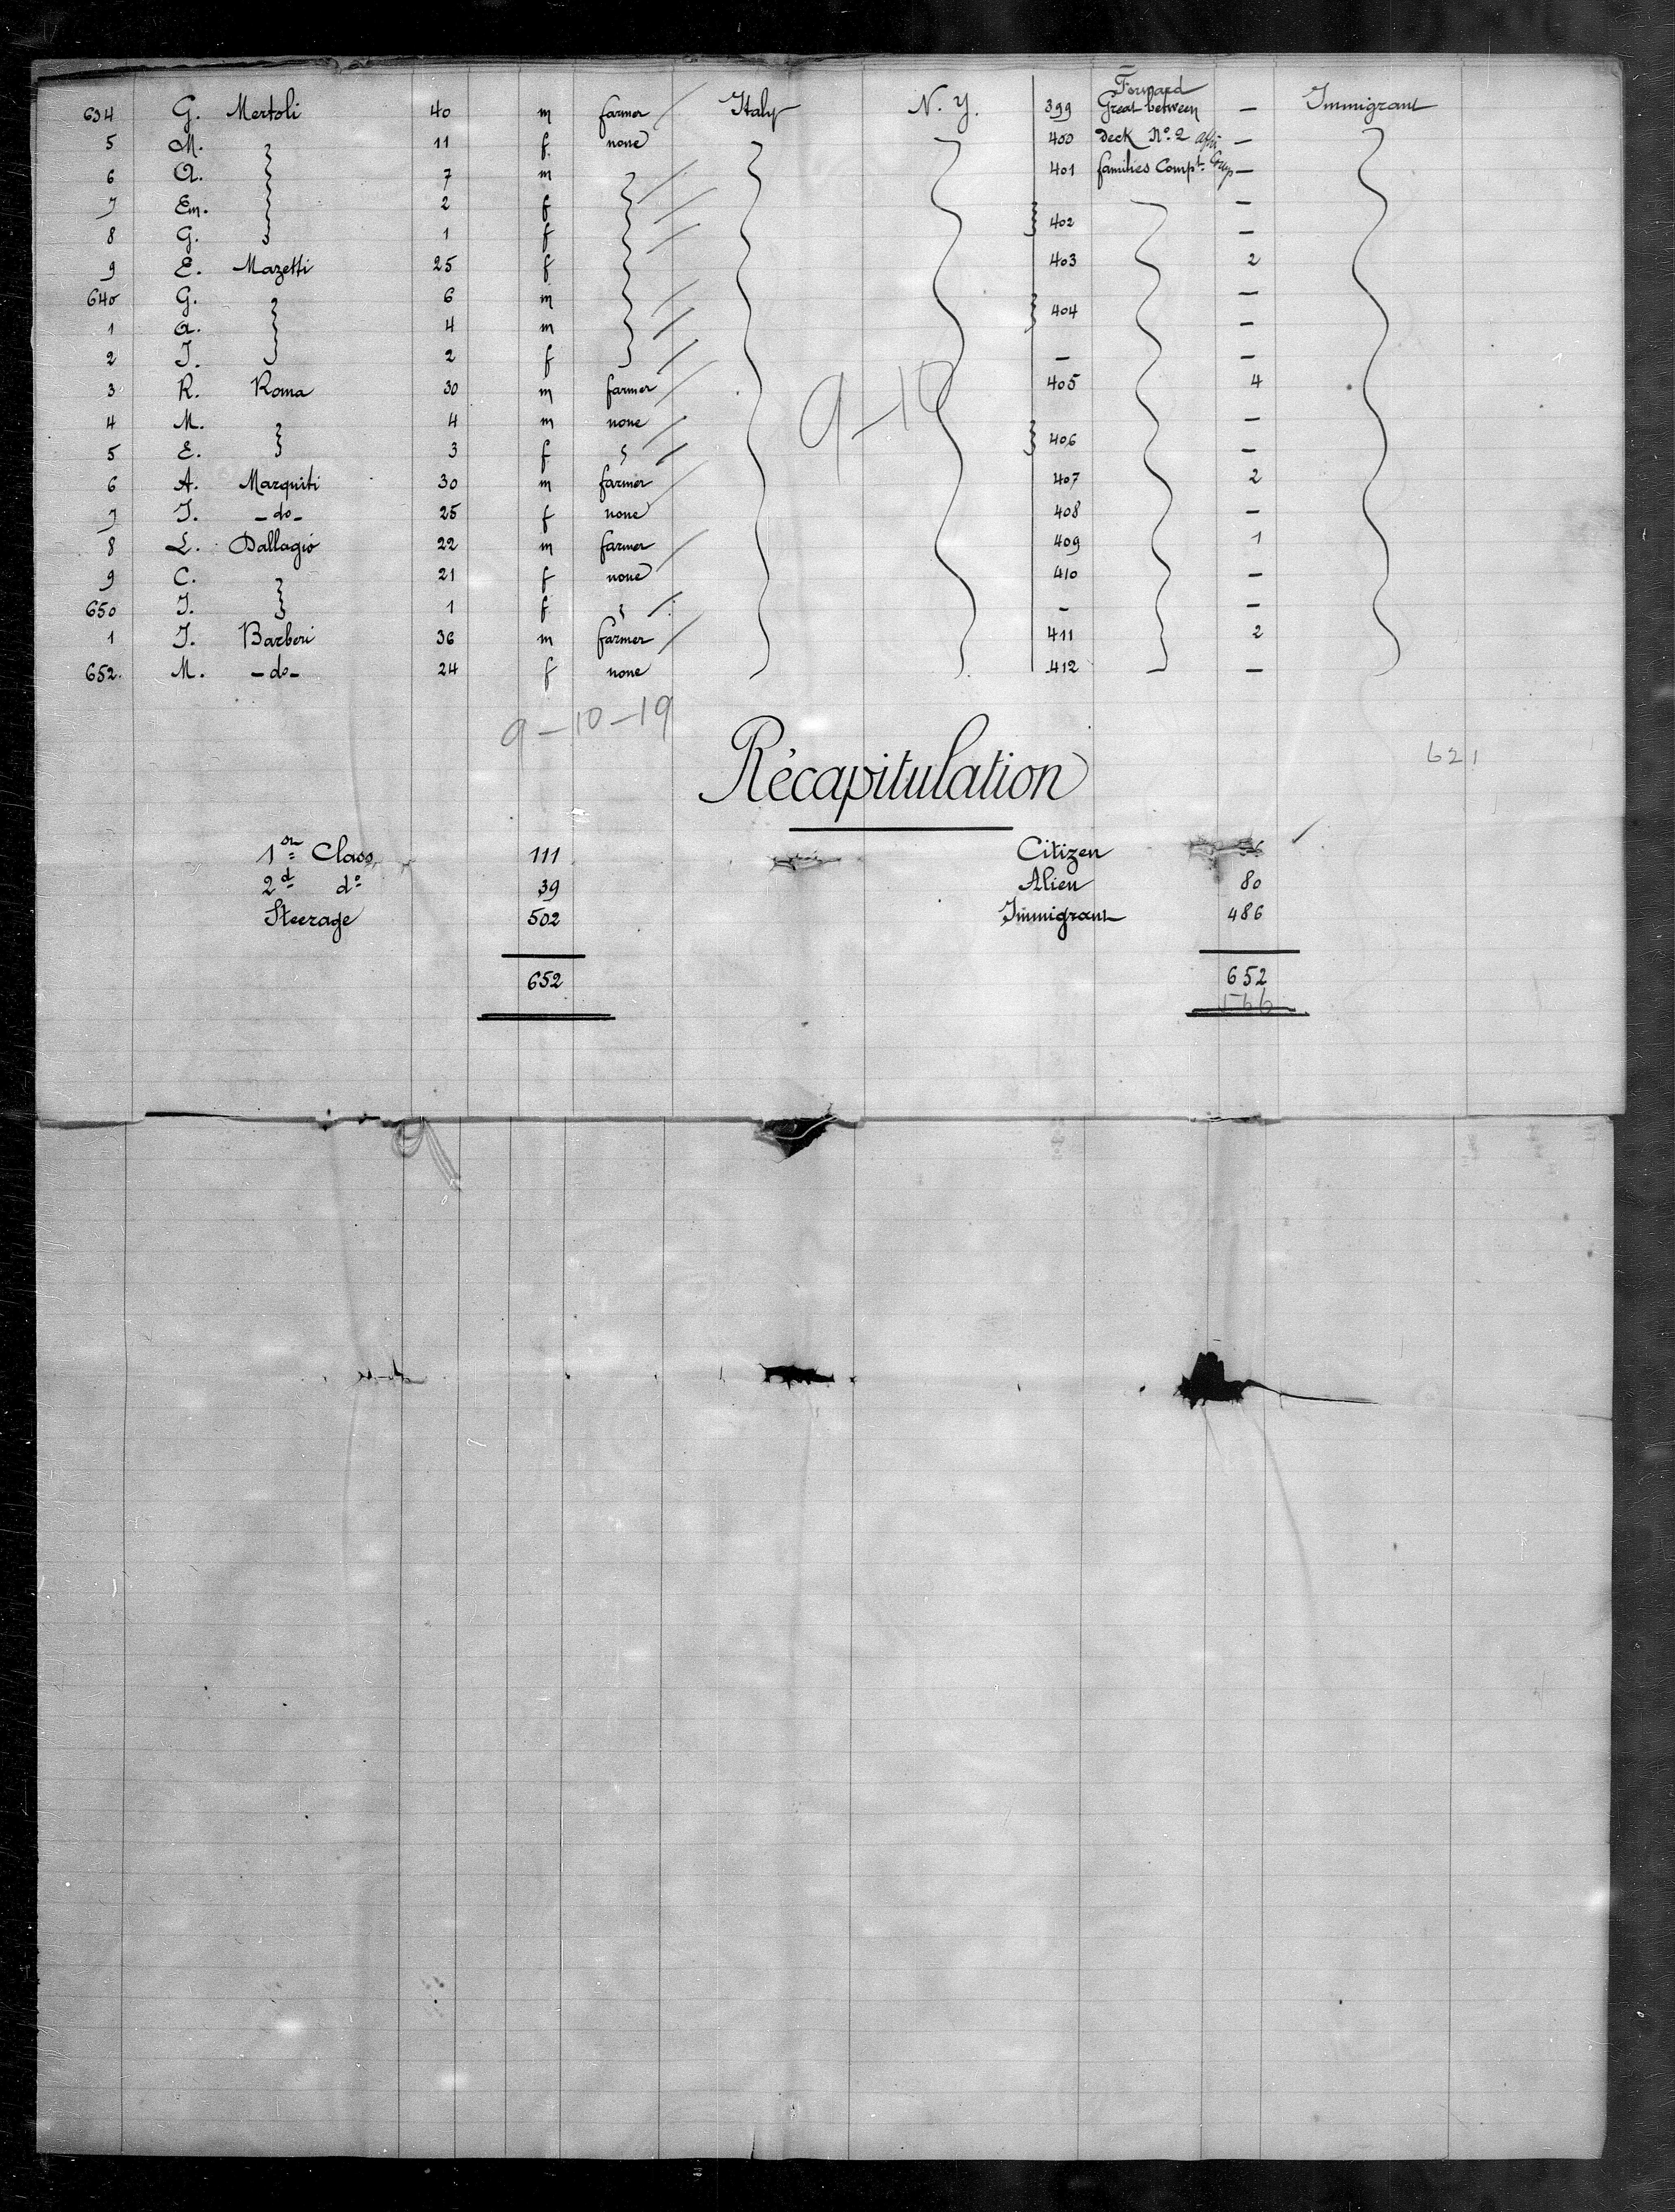 Forward
634 G. Mertoli 40 m farmer Italy N. Y. 399 Great between — Immigrant
5 M. 11 f none 400 deck Nº. 2 —
6 A. 7 m 401 families Compt. —
7 Em. 2 f —
8 G. 1 f 402 —
9 E. Mazetti 25 f 403 2
640 G. 6 m —
1 A. 4 m 404 —
2 J. 2 f — —
3 R. Roma 30 m farmer 405 4
9-10
4 M. 4 m none —
5 E. 3 f 406 —
6 A. Marquiti 30 m farmer 407 2
7 J. -do- 25 f none 408 —
8 L. Dallagio 22 m farmer 409 1
9 C. 21 f none 410 —
650 J. 1 f — —
1 J. Barberi 36 m farmer 411 2
652. M. -do- 24 f none 412 —
9-10-19
Récapitulation
621
1st Class 111 Citizen
2d dº 39 Alien 80
Steerage 502 Immigrant 486
652 652
166